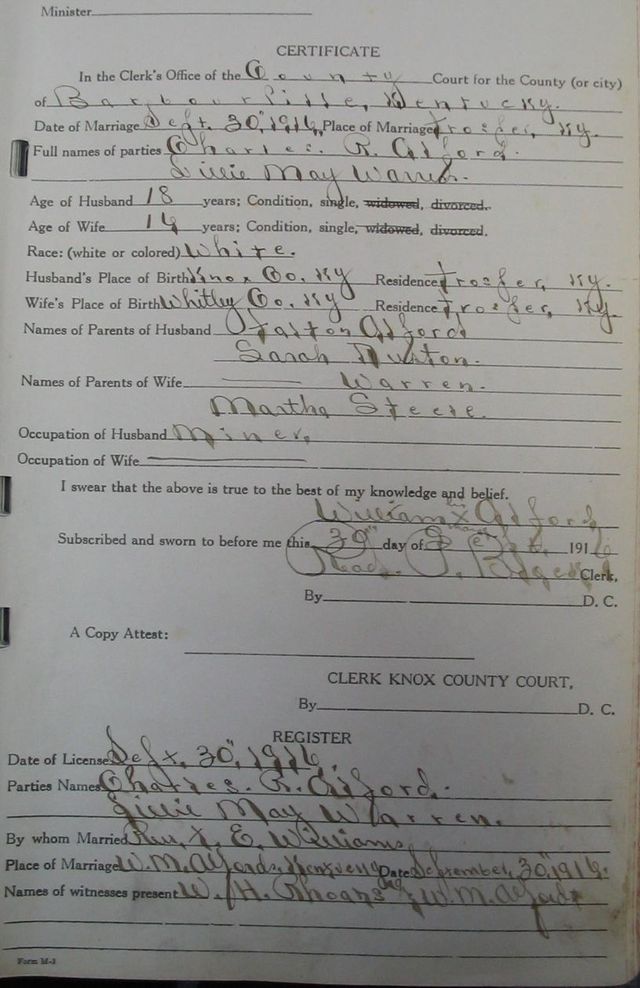 Minister
CERTIFICATE
In the Clerk's Office of the County Court for the County (or city)
of Barbourville, Kentucky.
Date of Marriage Sept. 30", 1916, Place of Marriage Trosper, Ky.
Full names of parties Charles. R. Alford.
Lillie May Warren.
Age of Husband 18 years; Condition, single, widowed, divorced.
Age of Wife years; Condition, single, widowed, divorced.
Race: (white or colored) White.
Husband's Place of Birth Knox Co, Ky Residence Trosper, Ky.
Wife's Place of Birth Whitley Co, Ky Residence Trosper, Ky.
Names of Parents of Husband Alford
Sarah
Names of Parents of Wife Warren.
Martha Steele.
Occupation of Husband Miner,
Occupation of Wife
I swear that the above is true to the best of my knowledge and belief.
William X Alford
Subscribed and sworn to before me this 30" day of Sept. 1916
Read. P. Clerk,
By D. C.
A Copy Attest:
CLERK KNOX COUNTY COURT,
By D. C.
REGISTER
Date of License Sept, 30", 1916.
Parties Names Charles. R. Alford.
Lillie May Warren.
By whom Married Rev, E. Williams,
Place of Marriage W. M. Alfords, Date September, 30" 1916.
Names of witnesses present W. H. & W. M. Alford
Form M-1